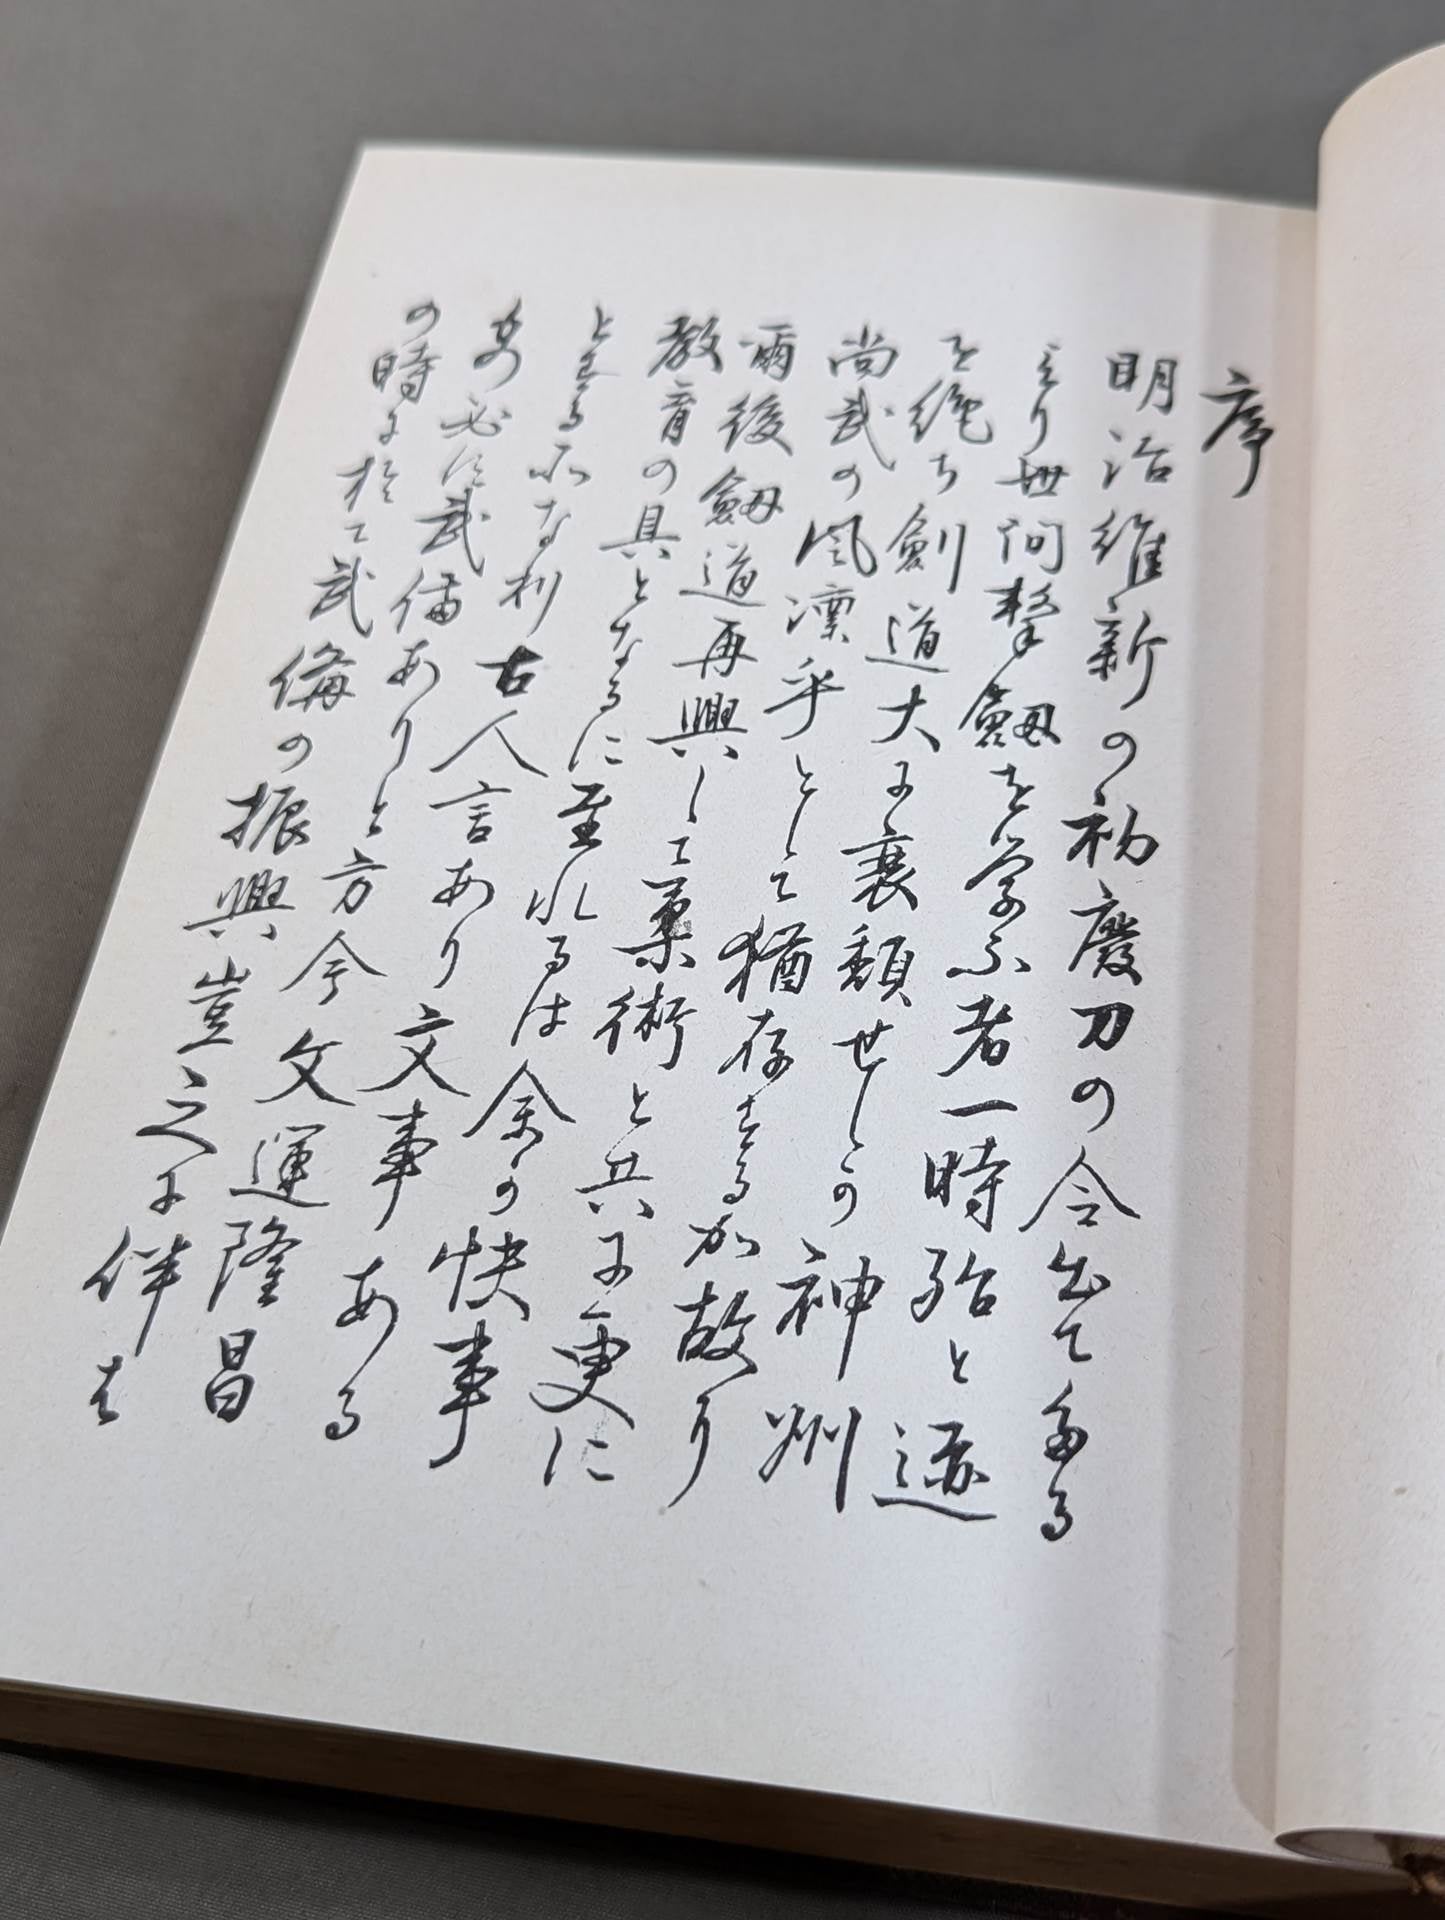 序
明治維新の初廢刀の令出てたる
より世間撃劔を学ふ者一時殆と迹
を絶ち劍道大に衰頽せしかの神州
尚武の風凛乎として猶存するか故り
爾後劔道再興して薬術と共に更に
教育の具となるに至れるは余の快事
とする所なり古人言あり文事ある
者必に武備ありと方今文運隆昌
の時に於て武備の振興豈之に伴は